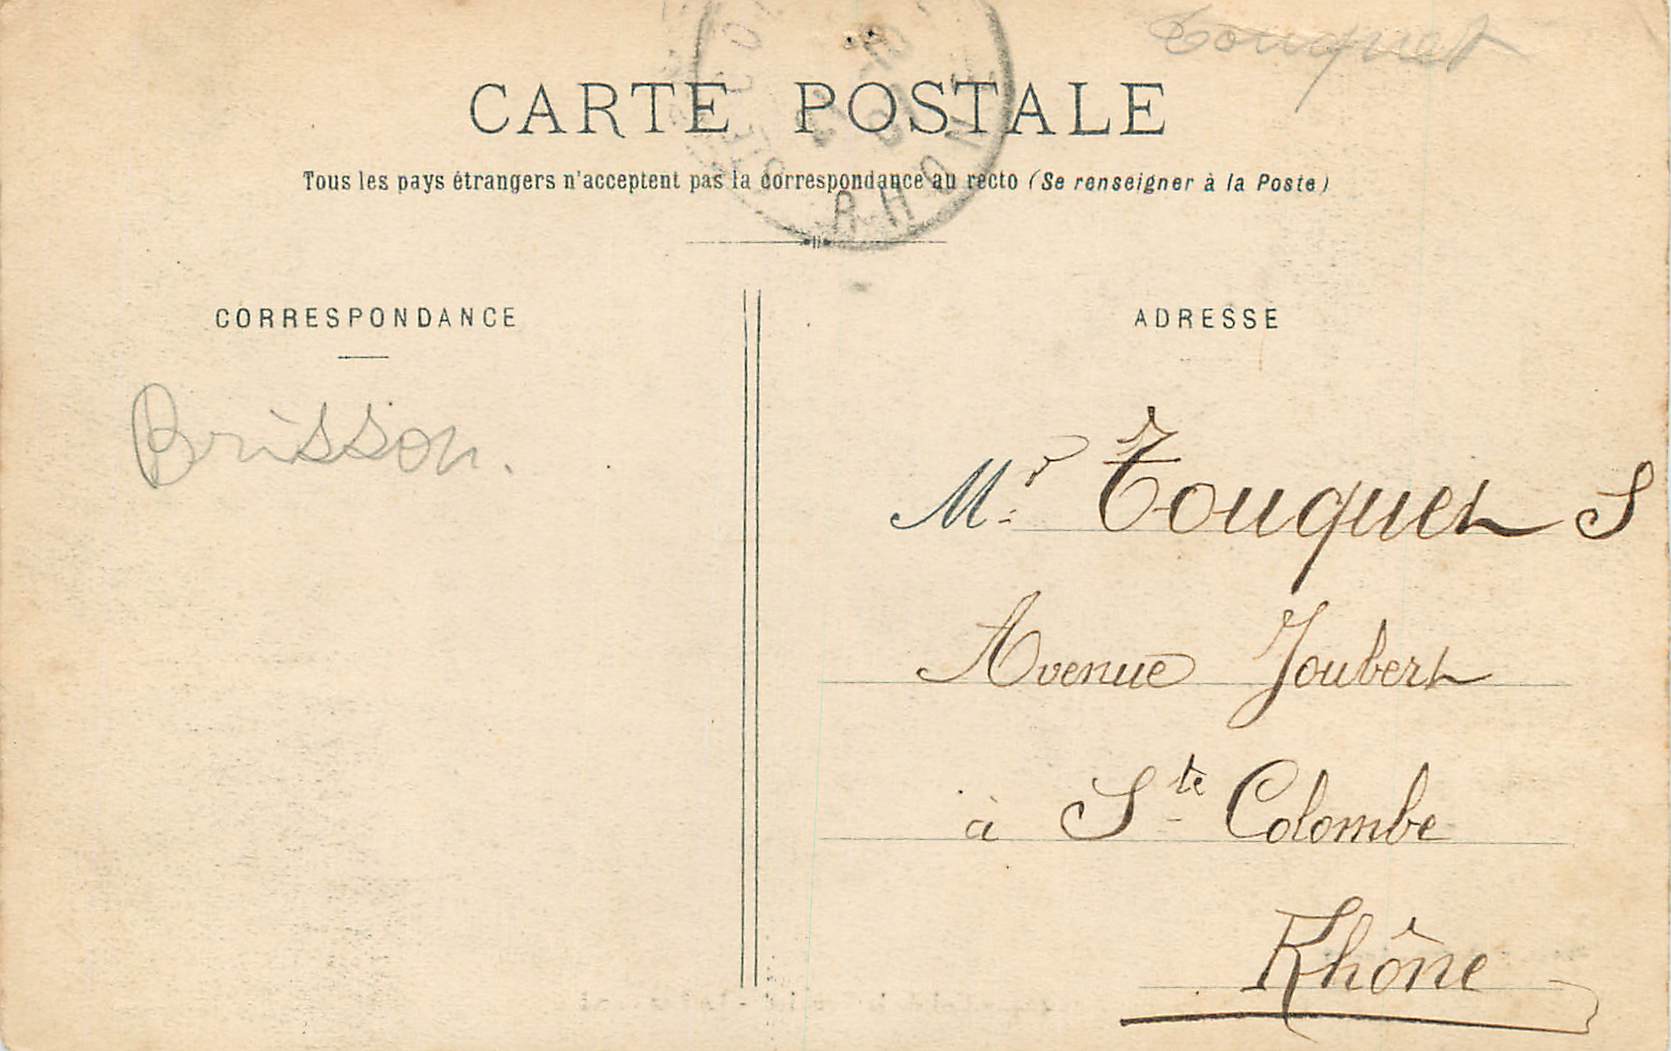 Touquet
CARTE POSTALE
Tous les pays étrangers n'acceptent pas la correspondance au recto (Se renseigner à la Poste)
RHONE
CORRESPONDANCE
Brisson.
ADRESSE
Mr Touquet S
Avenue Joubert
à Ste Colombe
Rhône